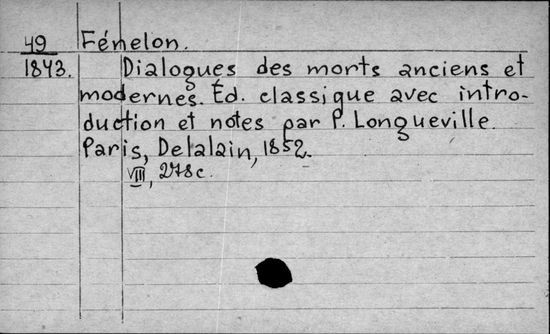 49 Fénelon.
1843. Dialogues des morts anciens et
modernes. Éd. classique avec intro-
duction et notes par P. Longueville.
Paris, Delalain, 1852.
VIII, 278 c.